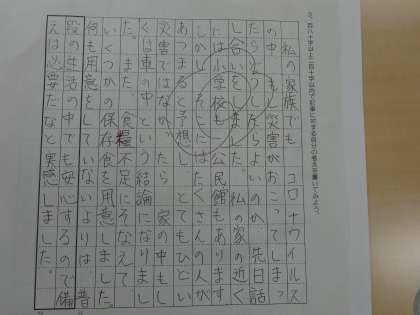 ２、百八十字以上二百十字以内で記事に対する自分の考えを書いてみよう。
私の家族でも、コロナウイルス
の中、もし災害がおこってしまっ
たらどうしたらよいのか、先日話
し合いをしました。私の家の近く
には小学校も公民館もあります。
しかし、そこにはたくさんの人が
あつまると予想し、とてもひどい
災害ではなかったら、家の中もし
くは車の中という結論になりまし
た。また、食糧不足にそなえて
いくつかの保存食を用意しました。
何も用意をしていないよりは、普
段の生活の中でも安心するので備
えは必要だなと実感しました。